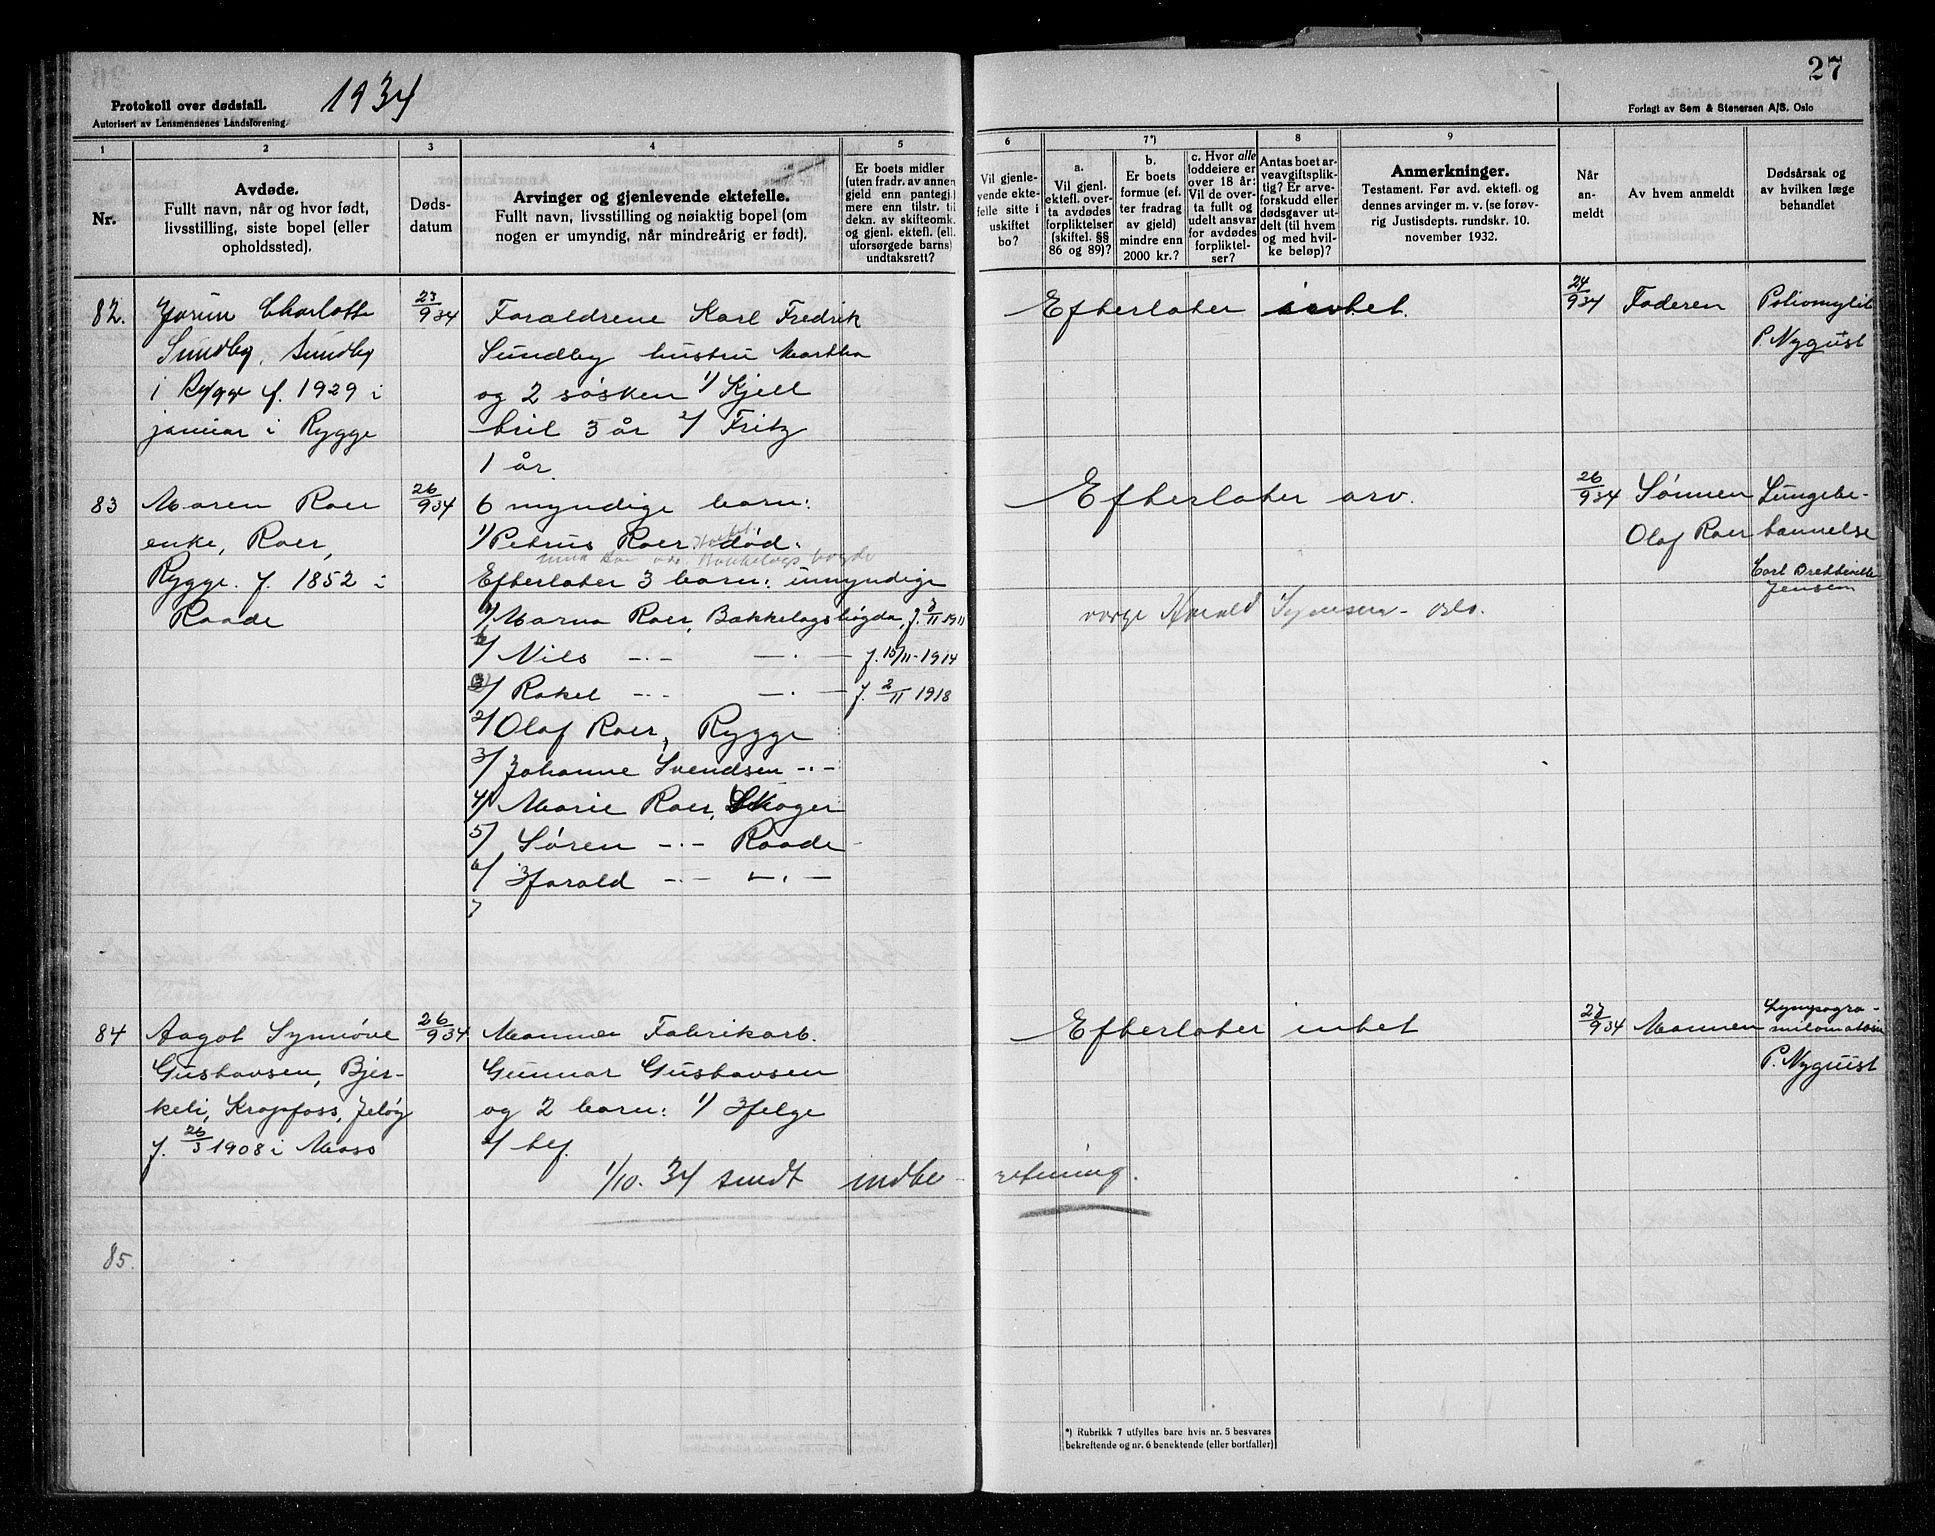 27
Protokoll over dødsfall.
1934
Autorisert av Lensmennenes Landsforening.
Forlagt av Sem & Stenersen A/S. Oslo
1 2 3 4 5 6 7*) 8 9
Nr.
Avdøde.
Fullt navn, når og hvor født,
livsstilling, siste bopel (eller
opholdssted).
Døds-
datum
Arvinger og gjenlevende ektefelle.
Fullt navn, livsstilling og nøiaktig bopel (om
nogen er umyndig, når mindreårig er født).
Er boets midler
(uten fradr. av annen
gjeld enn pantegj.)
mere enn tilstr. til
dekn. av skifteomk.
og gjenl. ektefl. (ell.
uforsørgede barns)
undtaksrett?
Vil gjenle-
vende ekte-
felle sitte i
uskiftet
bo?
a.
Vil gjenl.
ektefl. over-
ta avdødes
forpliktelser
(skiftel. §§
86 og 89)?
b.
Er boets
formue (ef-
ter fradrag
av gjeld)
mindre enn
2000 kr.?
c. Hvor alle
loddeiere er
over 18 år:
Vil de over-
ta fullt og
udelt ansvar
for avdødes
forpliktel-
ser?
Antas boet ar-
veavgiftsplik-
tig? Er arve-
forskudd eller
dødsgaver ut-
delt (til hvem
og med hvil-
ke beløp)?
Anmerkninger.
Testament. Før avd. ektefl. og
dennes arvinger m. v. (se forøv-
rig Justisdepts. rundskr. 10.
november 1932.
Når
an-
meldt
Av hvem anmeldt
Dødsårsak og
av hvilken læge
behandlet
82. Jorun Charlotte
Sundby, Sundby
i Rygge f. 1929 i
januar i Rygge
23/9 34
Foraldrene Karl Fredrik
Sundby hustru Martha
og 2 søsken 1/ Kjell
Emil 3 år 2/ Fritz
1 år
Efterlater intet.
24/9 34 Faderen
P. Nyquist
83 Maren Roer
enke, Roer,
Rygge. f. 1852 i
Raade
26/9 34
6 myndige barn:
1/ Petrus Roer død.
Efterlater 3 barn: umyndige
1/ Marna Roer, Bakkelagshøgda, f. 11 1911
2/ Nils -.- -.- f. 15/11-1914
3/ Rakel -.- -.- f. 2/11 1918
2/ Olaf Roer, Rygge
3/ Johanne Svendsen -.-
4/ Marie Roer, Skoger
5/ Søren -.- Raade
6/ Harald -.- -.-
7
Efterlater arv.
verge Harald - Oslo.
26/9 34 Sønnen
Olaf Roer
Lungebe-
tennelse
Carl Bretteville
Jensen
84 Aagot Synnøve
Gustavsen, Bjer-
keli, Krapfoss, Jeløy
f. 26/3 1908 i Moss
26/9 34
Mannen Fabrikarb.
Gunnar Gustavsen
og 2 barn: 1/ Helge
2/
Efterlater intet
27/9 34 Mannen
P. Nyquist
1/10. 34 sendt indbe-
retning.
85.
*) Rubrikk 7 utfylles bare hvis nr. 5 besvares
bekreftende og nr. 6 benektende (eller bortfaller)